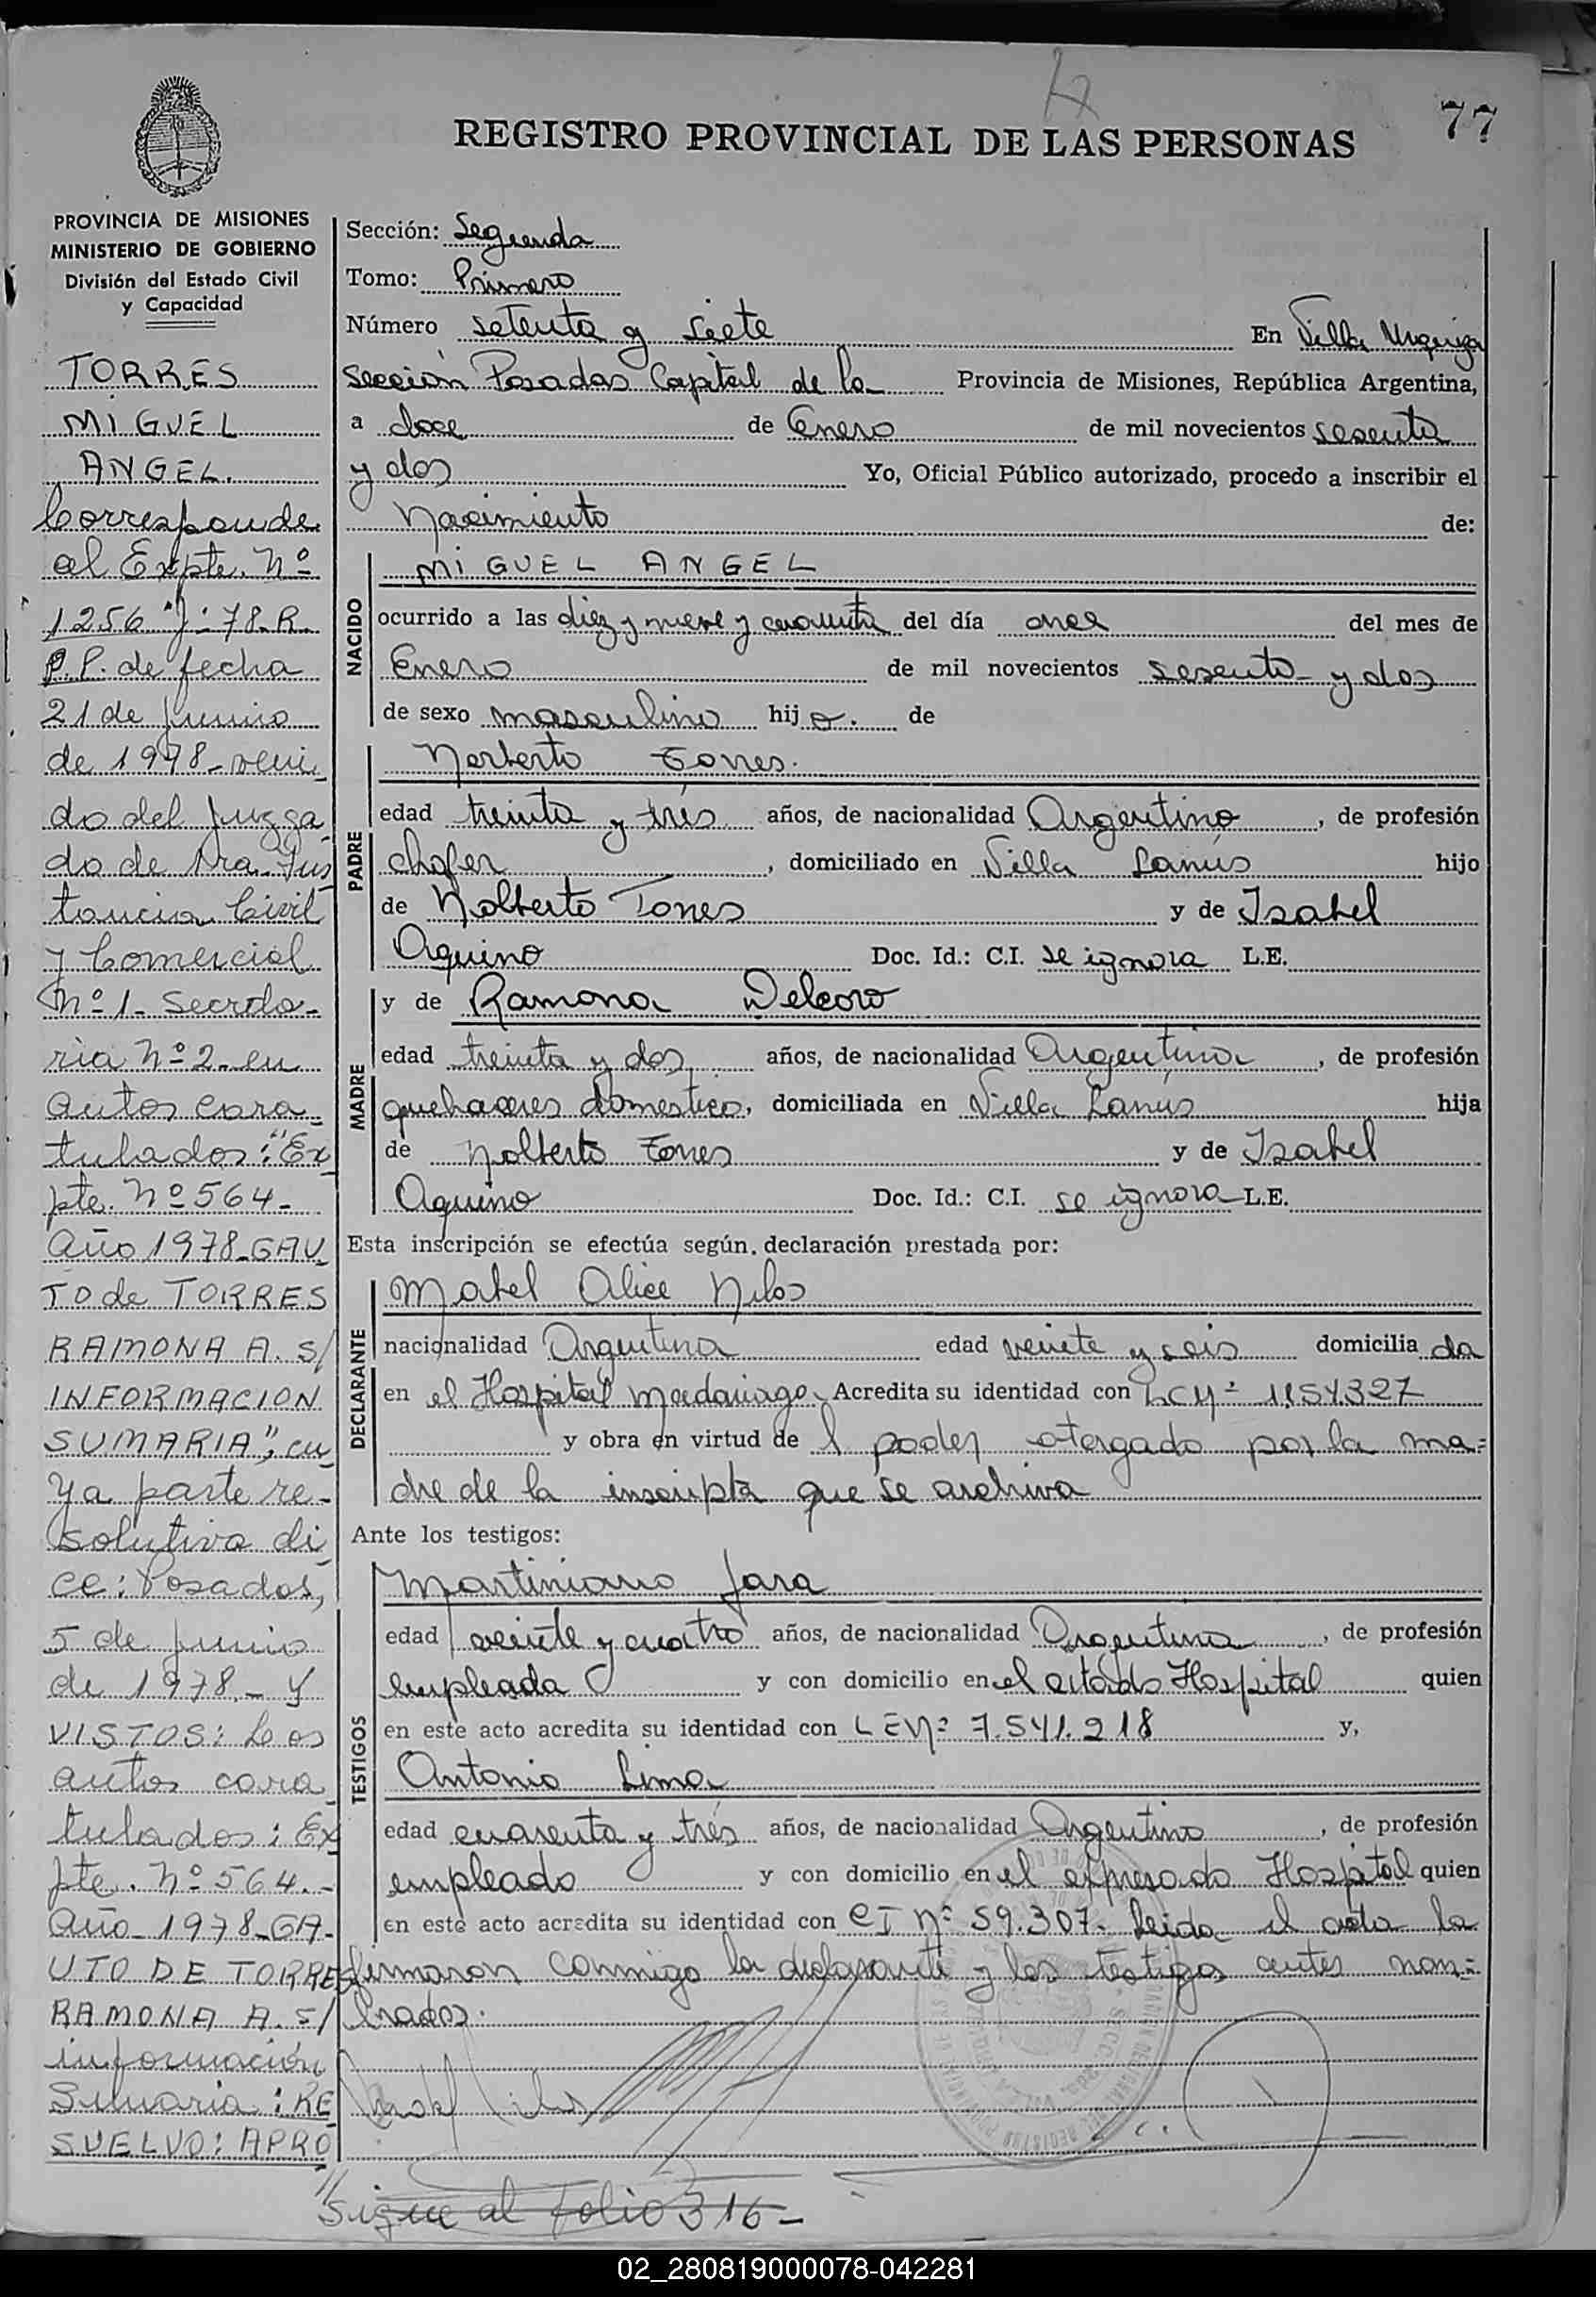 77
REGISTRO PROVINCIAL DE LAS PERSONAS
PROVINCIA DE MISIONES
MINISTERIO DE GOBIERNO
División del Estado Civil
y Capacidad
TORRES
MIGUEL
ANGEL.
Corresponde
al Expte. Nº
1256 "J"-78-R.
P.P. de fecha
21 de junio
de 1978-veni
do del Juzga
do de 1ra. Ins
tancia Civil
y Comercial
Nº 1- Secreta-
ria Nº 2- en
autos cara-
tulados: "Ex
pte. Nº 564-
Año 1978-GAU
TO de TORRES
RAMONA A. S/
INFORMACION
SUMARIA", cu
ya parte re-
solutiva di
ce: Posadas,
5 de junio
de 1978.- Y
VISTOS: Los
autos cara
tulados: Ex
pte. Nº 564.-
Año 1978-GA-
UTO DE TORRES
RAMONA A. S/
información
Sumaria: RE
SUELVO: APRO
Sección: Segunda
Tomo: Primero
Número setenta y siete En Villa Urquiza
Sección Posadas Capital de la Provincia de Misiones, República Argentina,
a doce de Enero de mil novecientos sesenta
y dos Yo, Oficial Público autorizado, procedo a inscribir el
Nacimiento de:
NACIDO
MIGUEL ANGEL
ocurrido a las diez y nueve y cuarenta del día once del mes de
Enero de mil novecientos sesenta y dos
de sexo masculino hijo. de
PADRE
Norberto Torres.
edad treinta y trés años, de nacionalidad Argentino, de profesión
chofer, domiciliado en Villa Lanús hijo
de Nolberto Torres y de Isabel
Aquino Doc. Id.: C.I. se ignora L.E.
MADRE
y de Ramona Delcoro
edad treinta y dos años, de nacionalidad Argentina, de profesión
quehaceres domestico, domiciliada en Villa Lanús hija
de Nolberto Torres y de Isabel
Aquino Doc. Id.: C.I. se ignora L.E.
Esta inscripción se efectúa según declaración prestada por:
DECLARANTE
Mabel Alice
nacionalidad Argentina edad veinte y seis domiciliada
en el Hospital Madariaga. Acredita su identidad con LC Nº 1.154.327
y obra en virtud del poder otorgado por la ma=
dre de la inscripta que se archiva
Ante los testigos:
TESTIGOS
Martiniano Jara
edad veinte y cuatro años, de nacionalidad Argentina, de profesión
empleada y con domicilio en el citado Hospital quien
en este acto acredita su identidad con LE Nº 7.541.218 y,
Antonio Lima
edad cuarenta y trés años, de nacionalidad Argentino, de profesión
empleado y con domicilio en el expresado Hospital quien
en este acto acredita su identidad con CI Nº 59.307. Leida el acta la
firmaron conmigo la declarante y los testigos antes nom=
brados.
//Sigue al folio 316-
02_280819000078-042281